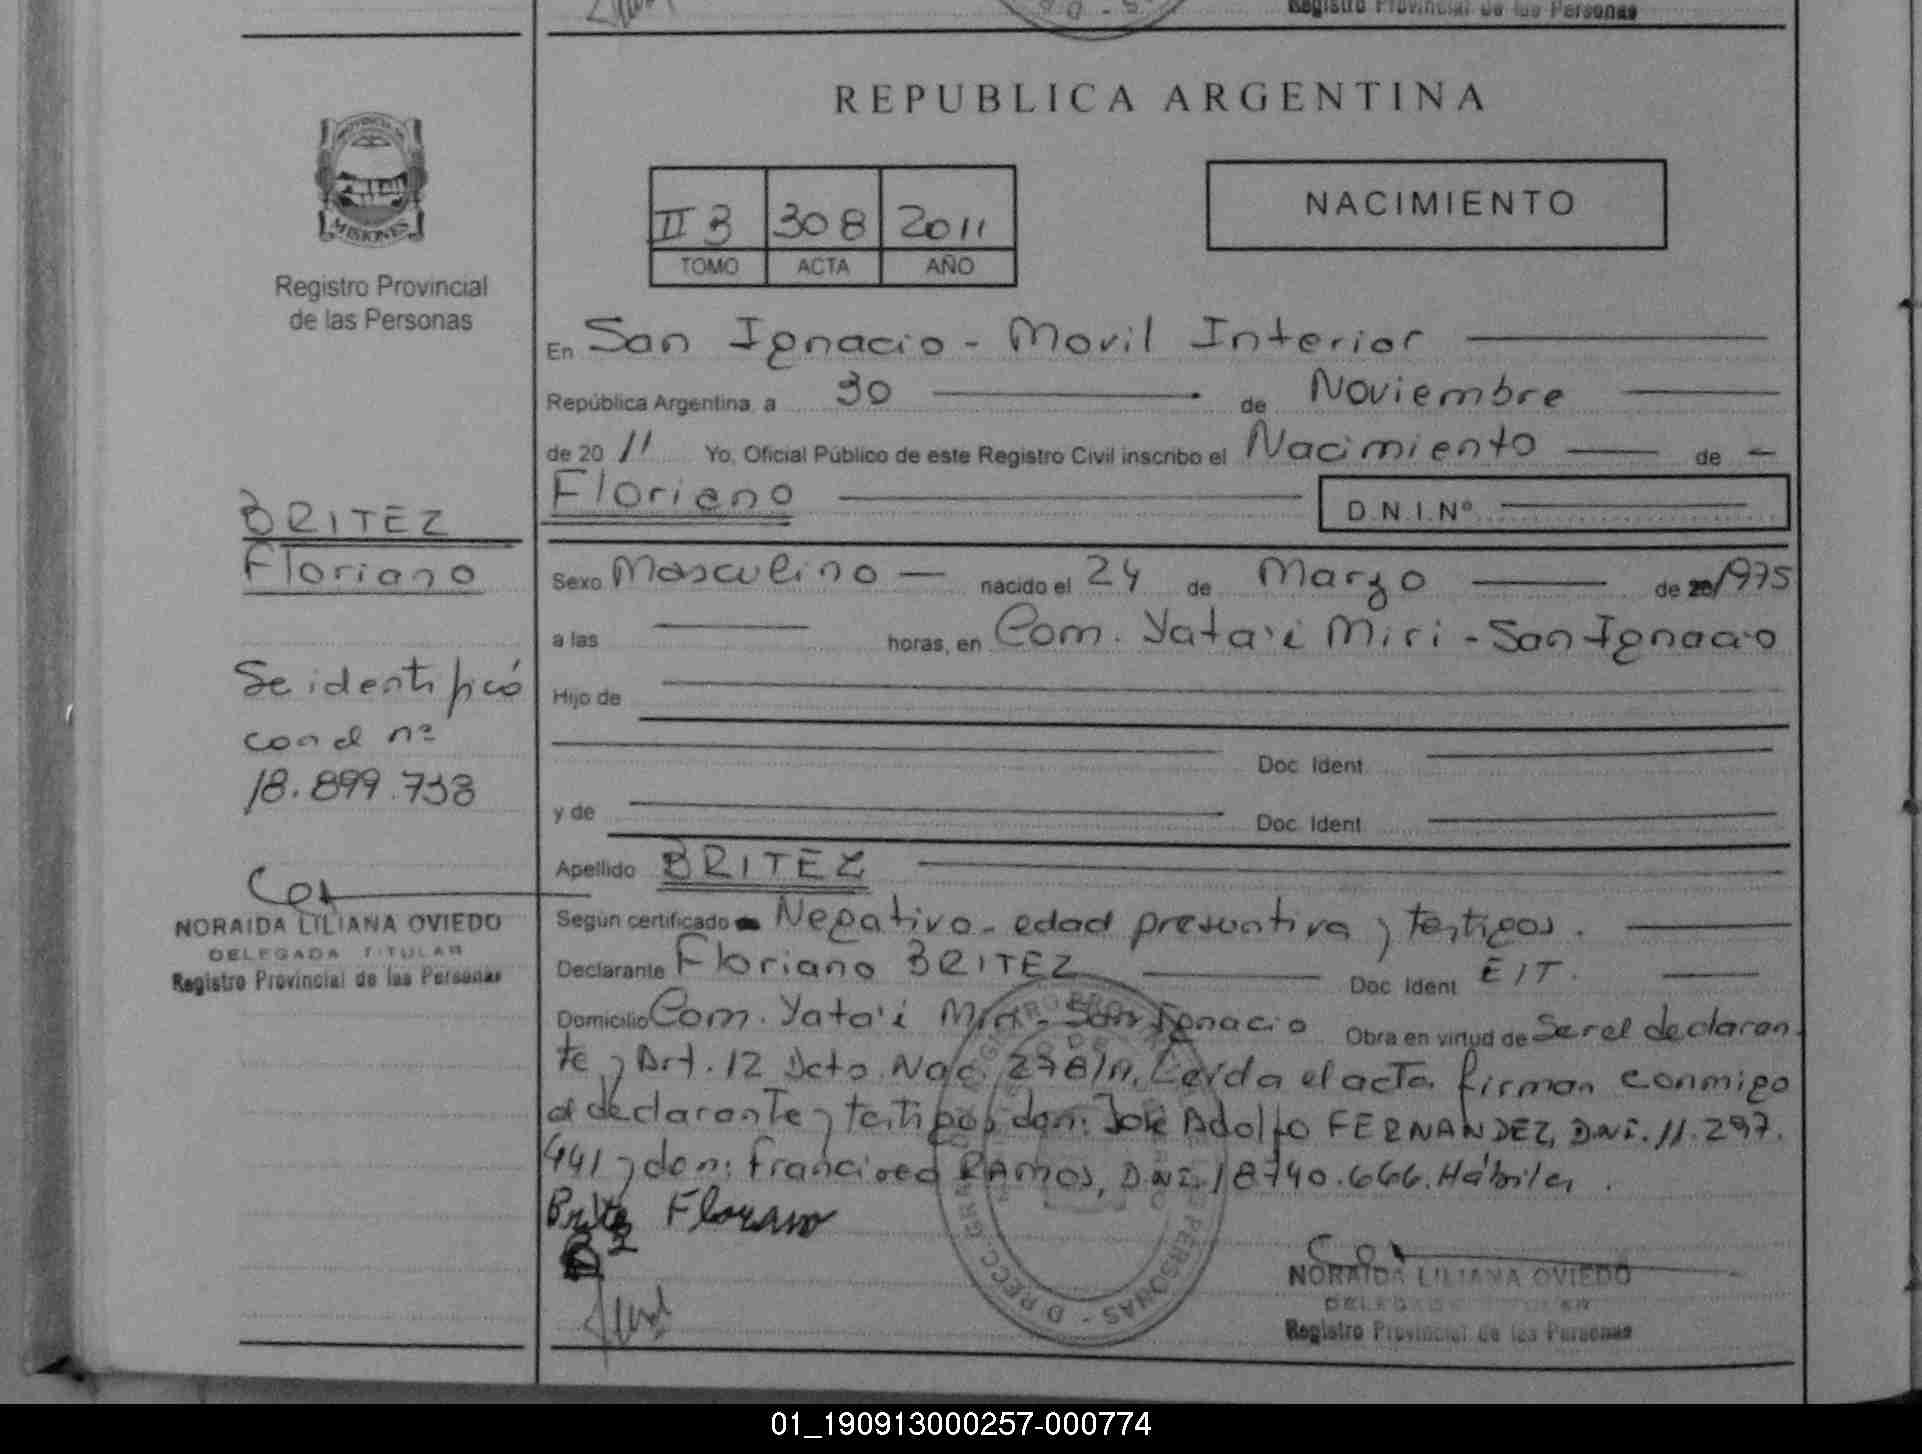 Registro Provincial de las Personas
REPUBLICA ARGENTINA
PROVINCIA DE
MISIONES
Registro Provincial
de las Personas
NACIMIENTO
II 3 308 2011
TOMO ACTA AÑO
En San Ignacio - Movil Interior
República Argentina, a 30 de Noviembre
de 2011 Yo, Oficial Público de este Registro Civil inscribo el Nacimiento de
Floriano
D.N.I.Nº
BRITEZ
Floriano
Sexo Masculino nacido el 24 de Marzo de 20/1975
a las horas, en Com. Yata'i Miri - San Ignacio
Hijo de
Se identificó
con el nº
18.899.738
Doc. Ident.
y de Doc. Ident.
Apellido BRITEZ
Según certificado Negativo - edad presuntiva y testigos.
Declarante Floriano BRITEZ Doc. Ident. EIT.
Domicilio Com. Yata'i Miri - San Ignacio Obra en virtud de Ser el declaran
te y Art. 12 Dcto. Nac. 278/11. Leída el acta firman conmigo
el declarante y testigos don: José Adolfo FERNANDEZ, D.N.I. 11.297.
441 y don: Francisco RAMOS, D.N.I. 18.740.666. Hábiles.
Britez Floriano
NORAIDA LILIANA OVIEDO
DELEGADA TITULAR
Registro Provincial de las Personas
NORAIDA LILIANA OVIEDO
DELEGADA TITULAR
Registro Provincial de las Personas
01_190913000257-000774